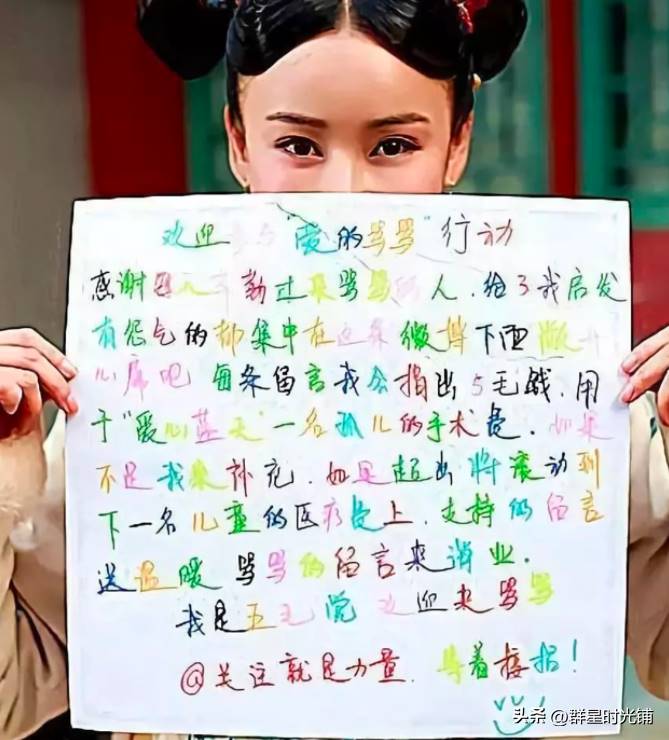 欢迎参与"爱的骂骂"行动
感谢 勤过来骂骂的人.给了我启发
有怨气的都集中在这条微博下面敞开
心扉吧 每条留言我会捐出5毛钱.用
于"爱心蓝天"一名孤儿的手术费.如果
不足我来补充.如果超出将滚动到
下一名儿童的医疗费上.支持的留言
送温暖 骂骂的留言来消业.
我是五毛党 欢迎来骂骂
@关注就是力量. 等着接招!
头条 @群星时光铺